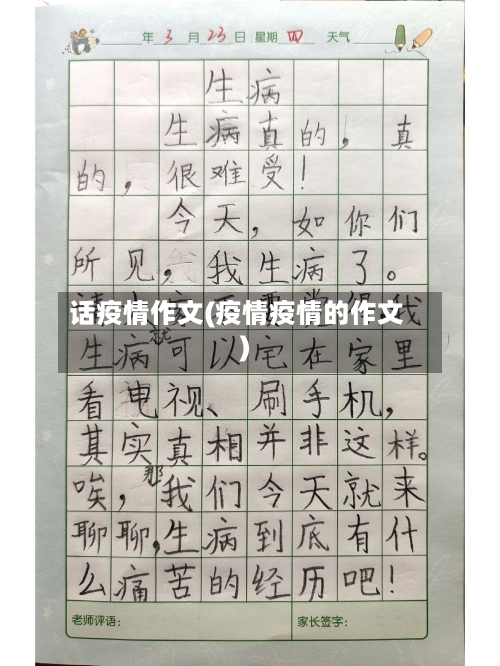 年 3 月 23 日 星期 四 天气
生病
生病真的，真
的，很难受！
今天，如你们
所见，我生病了。
我
话疫情作文(疫情疫情的作文
)
就
生病可以宅在家里
看电视、刷手机，
其实真相并非这样。
那
唉，我们今天就来
聊聊，生病到底有什
么痛苦的经历吧！
老师评语： 家长签字：